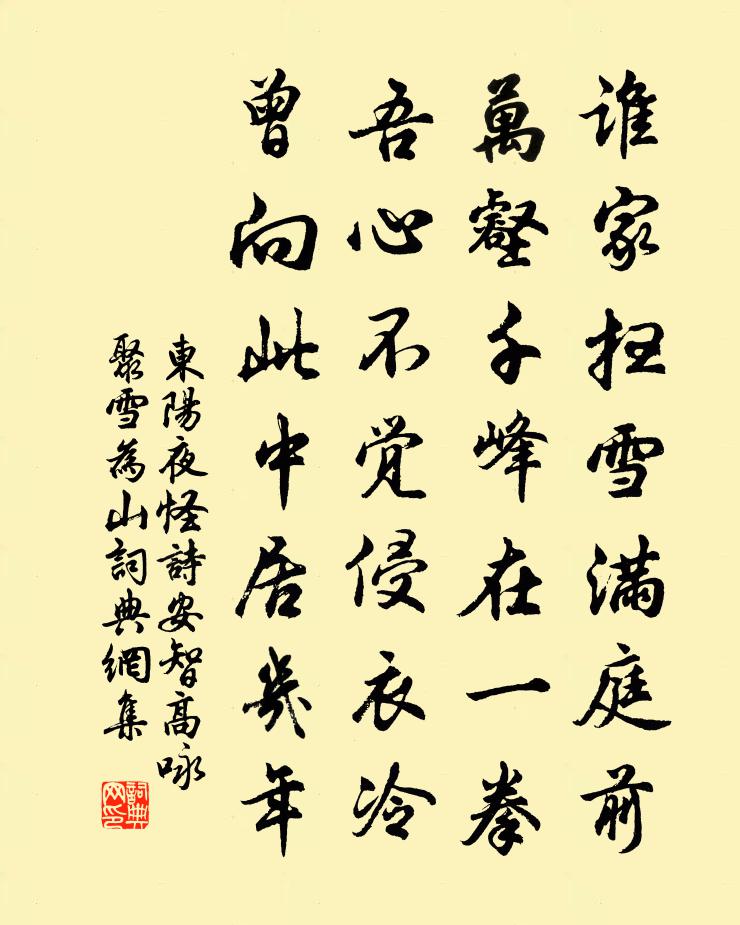 誰家扫雪满庭前
萬壑千峰在一拳
吾心不觉侵衣冷
曾向此中居幾年
東陽夜怪詩安智高咏
聚雪為山詞典網集
詞典
网印